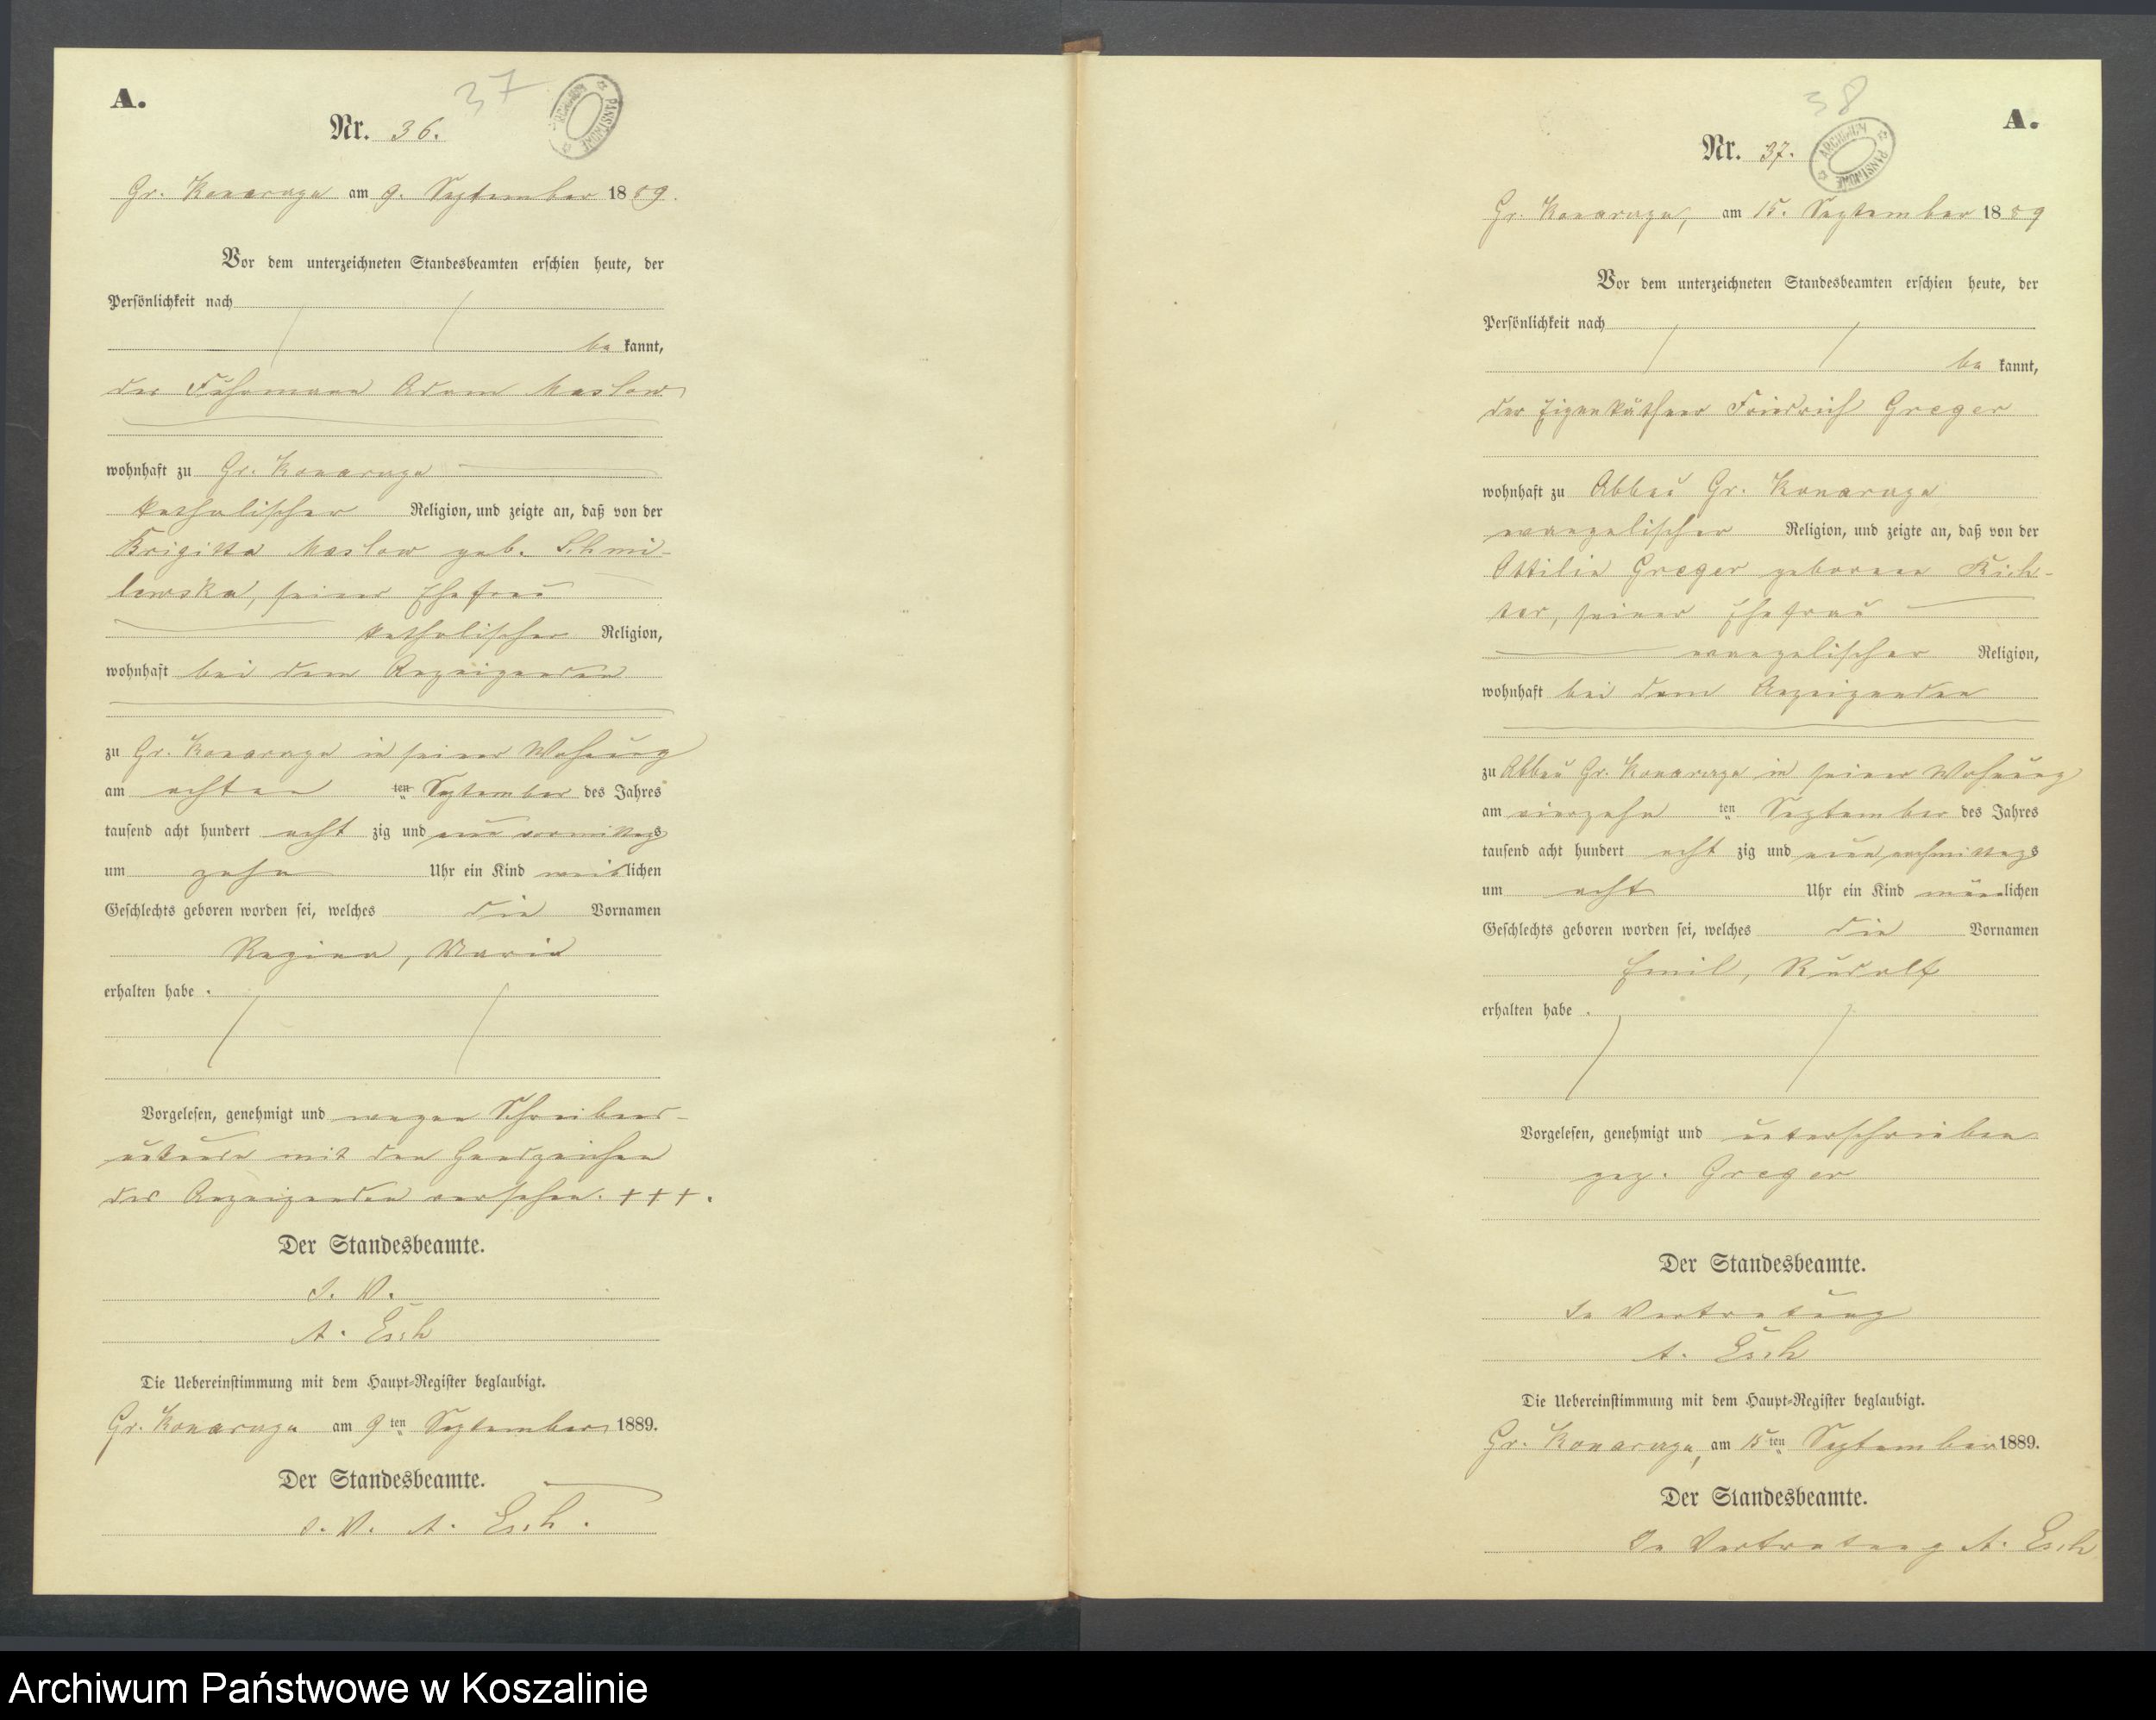 A.
37
Nr. 36.
ARCHIWUM PAŃSTWOWE
Gr. Konarzyn am 9. September 1889.
Vor dem unterzeichneten Standesbeamten erschien heute, der
Persönlichkeit nach
be kannt,
der Fuhrmann Adam Maslow
wohnhaft zu Gr. Konarzyn
katholischer Religion, und zeigte an, daß von der
Brigitta Maslow geb. Schmi-
lewska, seiner Ehefrau
katholischer Religion,
wohnhaft bei dem Anzeigenden
zu Gr. Konarzyn in seiner Wohnung
am achten ten September des Jahres
tausend acht hundert acht zig und neun vormittags
um zehn Uhr ein Kind weiblichen
Geschlechts geboren worden sei, welches die Vornamen
Regina, Maria
erhalten habe .
Vorgelesen, genehmigt und wegen Schreibens-
unkunde mit den Handzeichen
des Anzeigenden versehen. +++.
Der Standesbeamte.
I. V.
A. Esch
Die Uebereinstimmung mit dem Haupt-Register beglaubigt.
Gr. Konarzyn am 9 ten September 1889.
Der Standesbeamte.
I. V. A. Esch.
A.
38
Nr. 37.
ARCHIWUM PAŃSTWOWE
Gr. Konarzyn, am 15. September 1889
Vor dem unterzeichneten Standesbeamten erschien heute, der
Persönlichkeit nach
be kannt,
der Eigenkäthner Friedrich Greger
wohnhaft zu Abbau Gr. Konarzyn
evangelischer Religion, und zeigte an, daß von der
Ottilie Greger geborene Rich-
ter, seiner Ehefrau
evangelischer Religion,
wohnhaft bei dem Anzeigenden
zu Abbau Gr. Konarzyn in seiner Wohnung
am vierzehn ten September des Jahres
tausend acht hundert acht zig und neun nachmittags
um acht Uhr ein Kind männlichen
Geschlechts geboren worden sei, welches die Vornamen
Emil, Rudolf
erhalten habe .
Vorgelesen, genehmigt und unterschrieben
gez. Greger
Der Standesbeamte.
In Vertretung
A. Esch
Die Uebereinstimmung mit dem Haupt-Register beglaubigt.
Gr. Konarzyn, am 15 ten September 1889.
Der Standesbeamte.
In Vertretung A. Esch
Archiwum Państwowe w Koszalinie